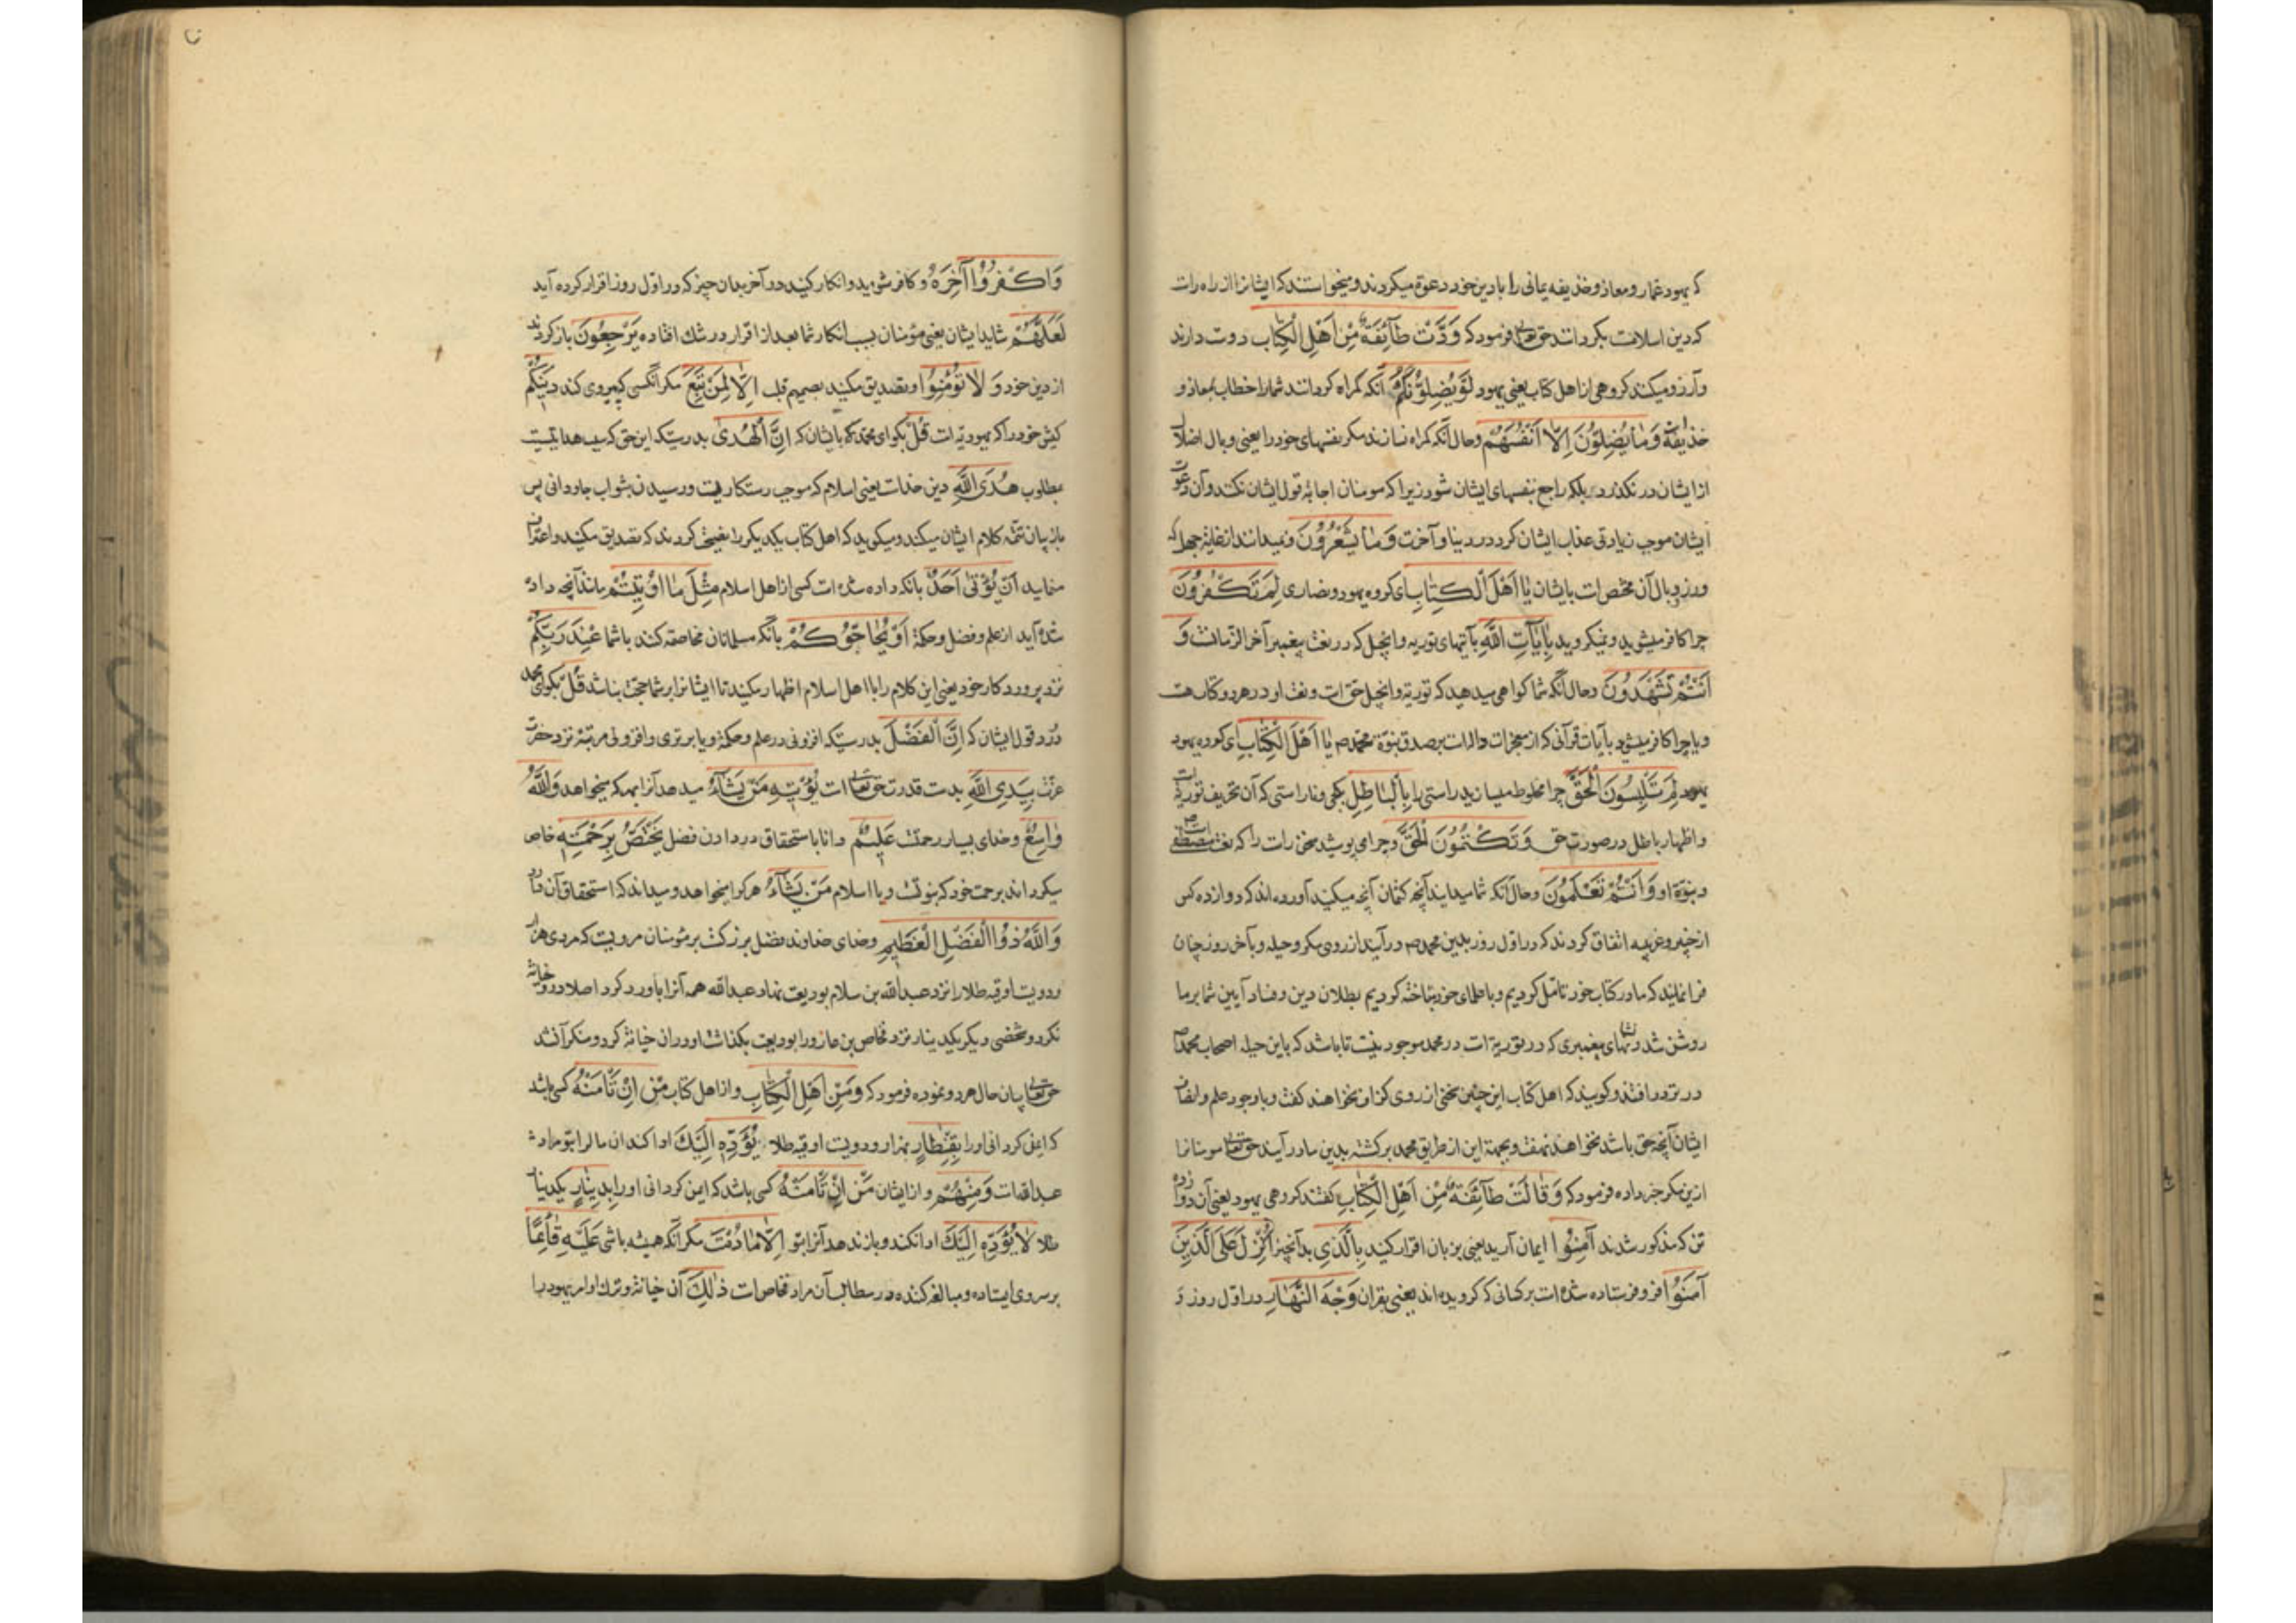 که یهود عمار و معاذ و حذیفه یمانی را بادین خود دعوة میکردند و میخواستند که ایشانرا از راه راست
که دین اسلامست بکردانند حق تعالی فرمود که وَدَّتْ طَآئِفَةٌ مِنْ اَهْلِ الْكِتٰابِ دوست دارند
و آرزو میکنند کروهی از اهل کتاب یعنی یهود لَوْ يُضِلُّونَكُمْ آنکه کمراه کردانند شما را خطاب بمعاذ و
حذیفة وَمٰا يُضِلُّونَ اِلّٰا اَنْفُسَهُمْ و حال آنکه کمراه نسازند مکر نفسهای خود را یعنی وبال اضلال
از ایشان در نکذرد بلکه راجع بنفسهای ایشان شود زیرا که مومنان اجابة قول ایشان نکنند و آن دعوت
ایشان موجب زیادتی عذاب ایشان کردد در دنیا و آخرت وَمٰا يَشْعُرُونَ و نمیدانند از غایة جهل که
وزر و وبال آن مختص است بایشان يٰا اَهْلَ الْكِتٰابِ ای کروه یهود و نصاری لِمَ تَكْفُرُونَ
چرا کافر میشوید و نمیکروید بِاٰيٰاتِ اللّٰهِ بآیتهای توریه و انجیل که در نعت پیغمبر آخر الزمانست وَ
اَنْتُمْ تَشْهَدُونَ و حال آنکه شما کواهی میدهید که توریة و انجیل حق است و نعت او در هر دو کتاب هست
و یا چرا کافر میشوید بآیات قرآنی که از معجزات و الات بر صدق نبوة محمد ص يٰا اَهْلَ الْكِتٰابِ ای کروه یهود
لِمَ تَلْبِسُونَ الْحَقَّ چرا مخلوط میسازید راستی را بِالْبٰاطِلِ بکجی و ناراستی که آن تحریف توریة است
و اظهار باطل در صورت حق وَتَكْتُمُونَ الْحَقَّ و چرا می پوشید سخن راست را که نعت مصطفی است ص
و نبوة او وَاَنْتُمْ تَعْلَمُونَ و حال آنکه شما میدانید آنچه کتمان آنچه میکنید آورده اند که دوازده کس
از خیبر و عرینه اتفاق کردند که در اول روز بدین محمد ص درآیند از روی مکر و حیله و بآخر روز چنان
فرا نمایند که ما در کتاب خود تامل کردیم و با علمای خود ساخته کردیم بطلان دین و فساد آیین شما بر ما
روشن شد و نشانهای پیغمبری که در توریة است در محمد موجود نیست تا باشد که باین حیله اصحاب محمد ص
در تردد افتند و کویند که اهل کتاب این چنین سخنی از روی کزاف نخواهند کفت و باوجود علم و انصاف
ایشان آنچه حق باشد نخواهند نهفت و بجهة این از طریق محمد برکشته بدین ما درآیند حق تعالی مومنانرا
ازین مکر خبر داده فرمود که وَقٰالَتْ طٰآئِفَةٌ مِنْ اَهْلِ الْكِتٰابِ کفتند کروهی یهود یعنی آن دوازده
تن که مذکور شدند اٰمِنُوا ایمان آرید یعنی بزبان اقرار کنید بِالَّذِي بدآنچیز اُنْزِلَ عَلَى الَّذِينَ
اٰمَنُوا فرو فرستاده شده است بر کسانی که کرویده اند یعنی بقران وَجْهَ النَّهٰارِ در اول روز وَ
وَاكْفُرُوا اٰخِرَهُ و کافر شوید و انکار کنید در آخر بدان چیز که در اول روز اقرار کرده آید
لَعَلَّهُمْ شاید ایشان یعنی مؤمنان بسبب انکار شما بعد از اقرار در شك افتاده يَرْجِعُونَ بازکردند
از دین خود وَلٰا تُؤْمِنُوا و تصدیق مکنید بصمیم قلب اِلّٰا لِمَنْ تَبِعَ مکر آنکسی که پیروی کند دِينَكُمْ
کیش خود را که یهودیة است قُلْ بکو ای محمد بایشان که اِنَّ الْهُدٰى بدرستیکه این حق که سبب هدایتست
مطلوب هُدَى اللّٰهِ دین خداست یعنی اسلام که موجب رستکاریست و رسیدن بثواب جاودانی پس
باز بیان تتمه کلام ایشان میکند و میکوید که اهل کتاب یکدیکر را نصیحت کردند که تصدیق مکنید و اعتراف
منمایید اَنْ يُؤْتٰى اَحَدٌ بانکه داده شده است کسی از اهل اسلام مِثْلَ مٰا اُوتِيتُمْ مانند آنچه داده
شده آید از علم و فضل و حکمة اَوْ يُحٰاجُّوكُمْ بانکه مسلمانان مخاصمه کنند با شما عِنْدَ رَبِّكُمْ
نزد پروردکار خود یعنی این کلام را با اهل اسلام اظهار مکنید تا ایشانرا بر شما حجت نباشد قُلْ بکو ای محمد
در رد قول ایشان که اِنَّ الْفَضْلَ بدرستیکه افزونی در علم و حکمة و یا برتری و افزونی مرتبة نزد حضرت
عزت بِيَدِ اللّٰهِ بدست قدرت حق تعالی است يُؤْتِيهِ مَنْ يَشٰآءُ میدهد آنرا بهر که میخواهد وَاللّٰهُ
وٰاسِعٌ و خدای بسیار رحمتست عَلِيمٌ دانا باستحقاق در دادن فضل يَخْتَصُّ بِرَحْمَتِهٖ خاص
میکرداند برحمت خود که نبوتست و یا اسلام مَنْ يَشٰآءُ هر کرا میخواهد و میداند که استحقاق آن دارد
وَاللّٰهُ ذُوا الْفَضْلِ الْعَظِيمِ و خدای خداوند فضل بزرکست بر مؤمنان مرویست که مردی هزار
و دویست اوقیه طلا را نزد عبدالله بن سلام بودیعت نهاد عبدالله همه آنرا باو رد کرد اصلا در و خیانة
نکرد و شخصی دیکر یکدینار نزد فخاص بن عازورا بودیعت بکذاشت او در ان خیانة کرد و منکر آن شد
حق تعالی بیان حال هر دو نموده فرمود که وَمِنْ اَهْلِ الْكِتٰابِ و از اهل کتاب مَنْ اِنْ تَأْمَنْهُ کسی باشد
که ایمن کردانی او را بِقِنْطٰارٍ بهزار و دویست اوقیه طلا يُؤَدِّهٖ اِلَيْكَ ادا کند ان مال را بتو مراد
عبدالله است وَمِنْهُمْ و از ایشان مَنْ اِنْ تَأْمَنْهُ کسی باشد که ایمن کردانی او را بِدِينٰارٍ یکدینار
طلا لٰا يُؤَدِّهٖ اِلَيْكَ ادا نکند و باز ندهد آنرا بتو اِلّٰا مٰا دُمْتَ مکر آنکه همیشه باشی عَلَيْهِ قٰآئِمًا
بر سر وی ایستاده و مبالغه کننده در مطالبه آن مراد فخاص است ذٰلِكَ آن خیانة و ترك اوامر یهود را